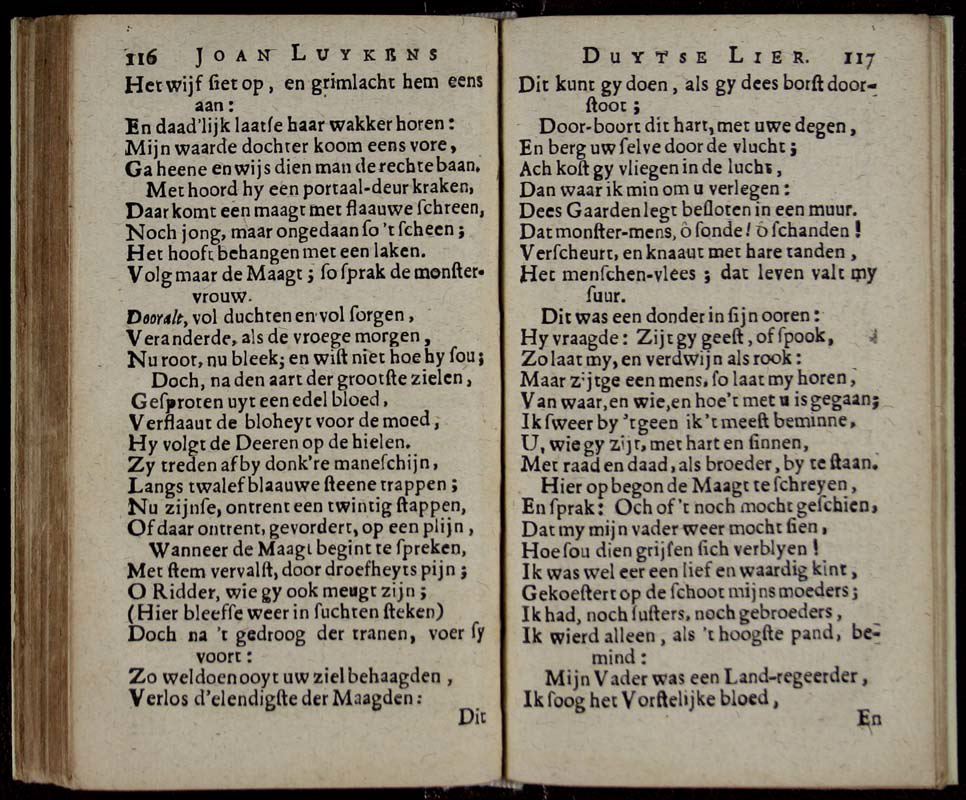 116 JOAN LUYKENS
Het wijf ſiet op, en grimlacht hem eens
aan:
En daad'lijk laatſe haar wakker horen:
Mijn waarde dochter koom eens vore,
Ga heene en wijs dien man de rechte baan.
Met hoord hy een portaal-deur kraken,
Daar komt een maagt met flaauwe ſchreen,
Noch jong, maar ongedaan ſo 't ſcheen;
Het hooft behangen met een laken.
Volg maar de Maagt; ſo ſprak de monſter-
vrouw.
Dooralt, vol duchten en vol ſorgen,
Veranderde, als de vroege morgen,
Nu root, nu bleek; en wiſt niet hoe hy ſou;
Doch, na den aart der grootſte zielen,
Geſproten uyt een edel bloed,
Verflaaut de bloheyt voor de moed,
Hy volgt de Deeren op de hielen.
Zy treden af by donk're maneſchijn,
Langs twalef blaauwe ſteene trappen;
Nu zijnſe, ontrent een twintig ſtappen,
Of daar ontrent, gevordert, op een plijn,
Wanneer de Maagt begint te ſpreken,
Met ſtem vervalſt, door droefheyts pijn;
O Ridder, wie gy ook meugt zijn;
(Hier bleefſe weer in ſuchten ſteken)
Doch na 't gedroog der tranen, voer ſy
voort:
Zo wel doen ooyt uw ziel behaagden,
Verlos d'elendigſte der Maagden:
Dit
DUYTSE LIER. 117
Dit kunt gy doen, als gy dees borſt door-
ſtoot;
Door-boort dit hart, met uwe degen,
En berg uw ſelve door de vlucht;
Ach koſt gy vliegen in de lucht,
Dan waar ik min om u verlegen:
Dees Gaarden legt beſloten in een muur.
Dat monſter-mens, ô ſonde! ô ſchanden!
Verſcheurt, en knaaut met hare tanden,
Het menſchen-vlees; dat leven valt my
ſuur.
Dit was een donder in ſijn ooren:
Hy vraagde: Zijt gy geeſt, of ſpook,
Zo laat my, en verdwijn als rook:
Maar zijtge een mens, ſo laat my horen,
Van waar, en wie, en hoe't met u is gegaan;
Ik ſweer by 't geen ik 't meeſt beminne,
U, wie gy zijt, met hart en ſinnen,
Met raad en daad, als broeder, by te ſtaan.
Hier op begon de Maagt te ſchreyen,
En ſprak: Och of 't noch mocht geſchien,
Dat my mijn vader weer mocht ſien,
Hoe ſou dien grijſen ſich verblyen!
Ik was wel eer een lief en waardig kint,
Gekoeſtert op de ſchoot mijns moeders;
Ik had, noch ſuſters, noch gebroeders,
Ik wierd alleen, als 't hoogſte pand, be-
mind:
Mijn Vader was een Land-regeerder,
Ik ſoog het Vorſtelijke bloed,
En